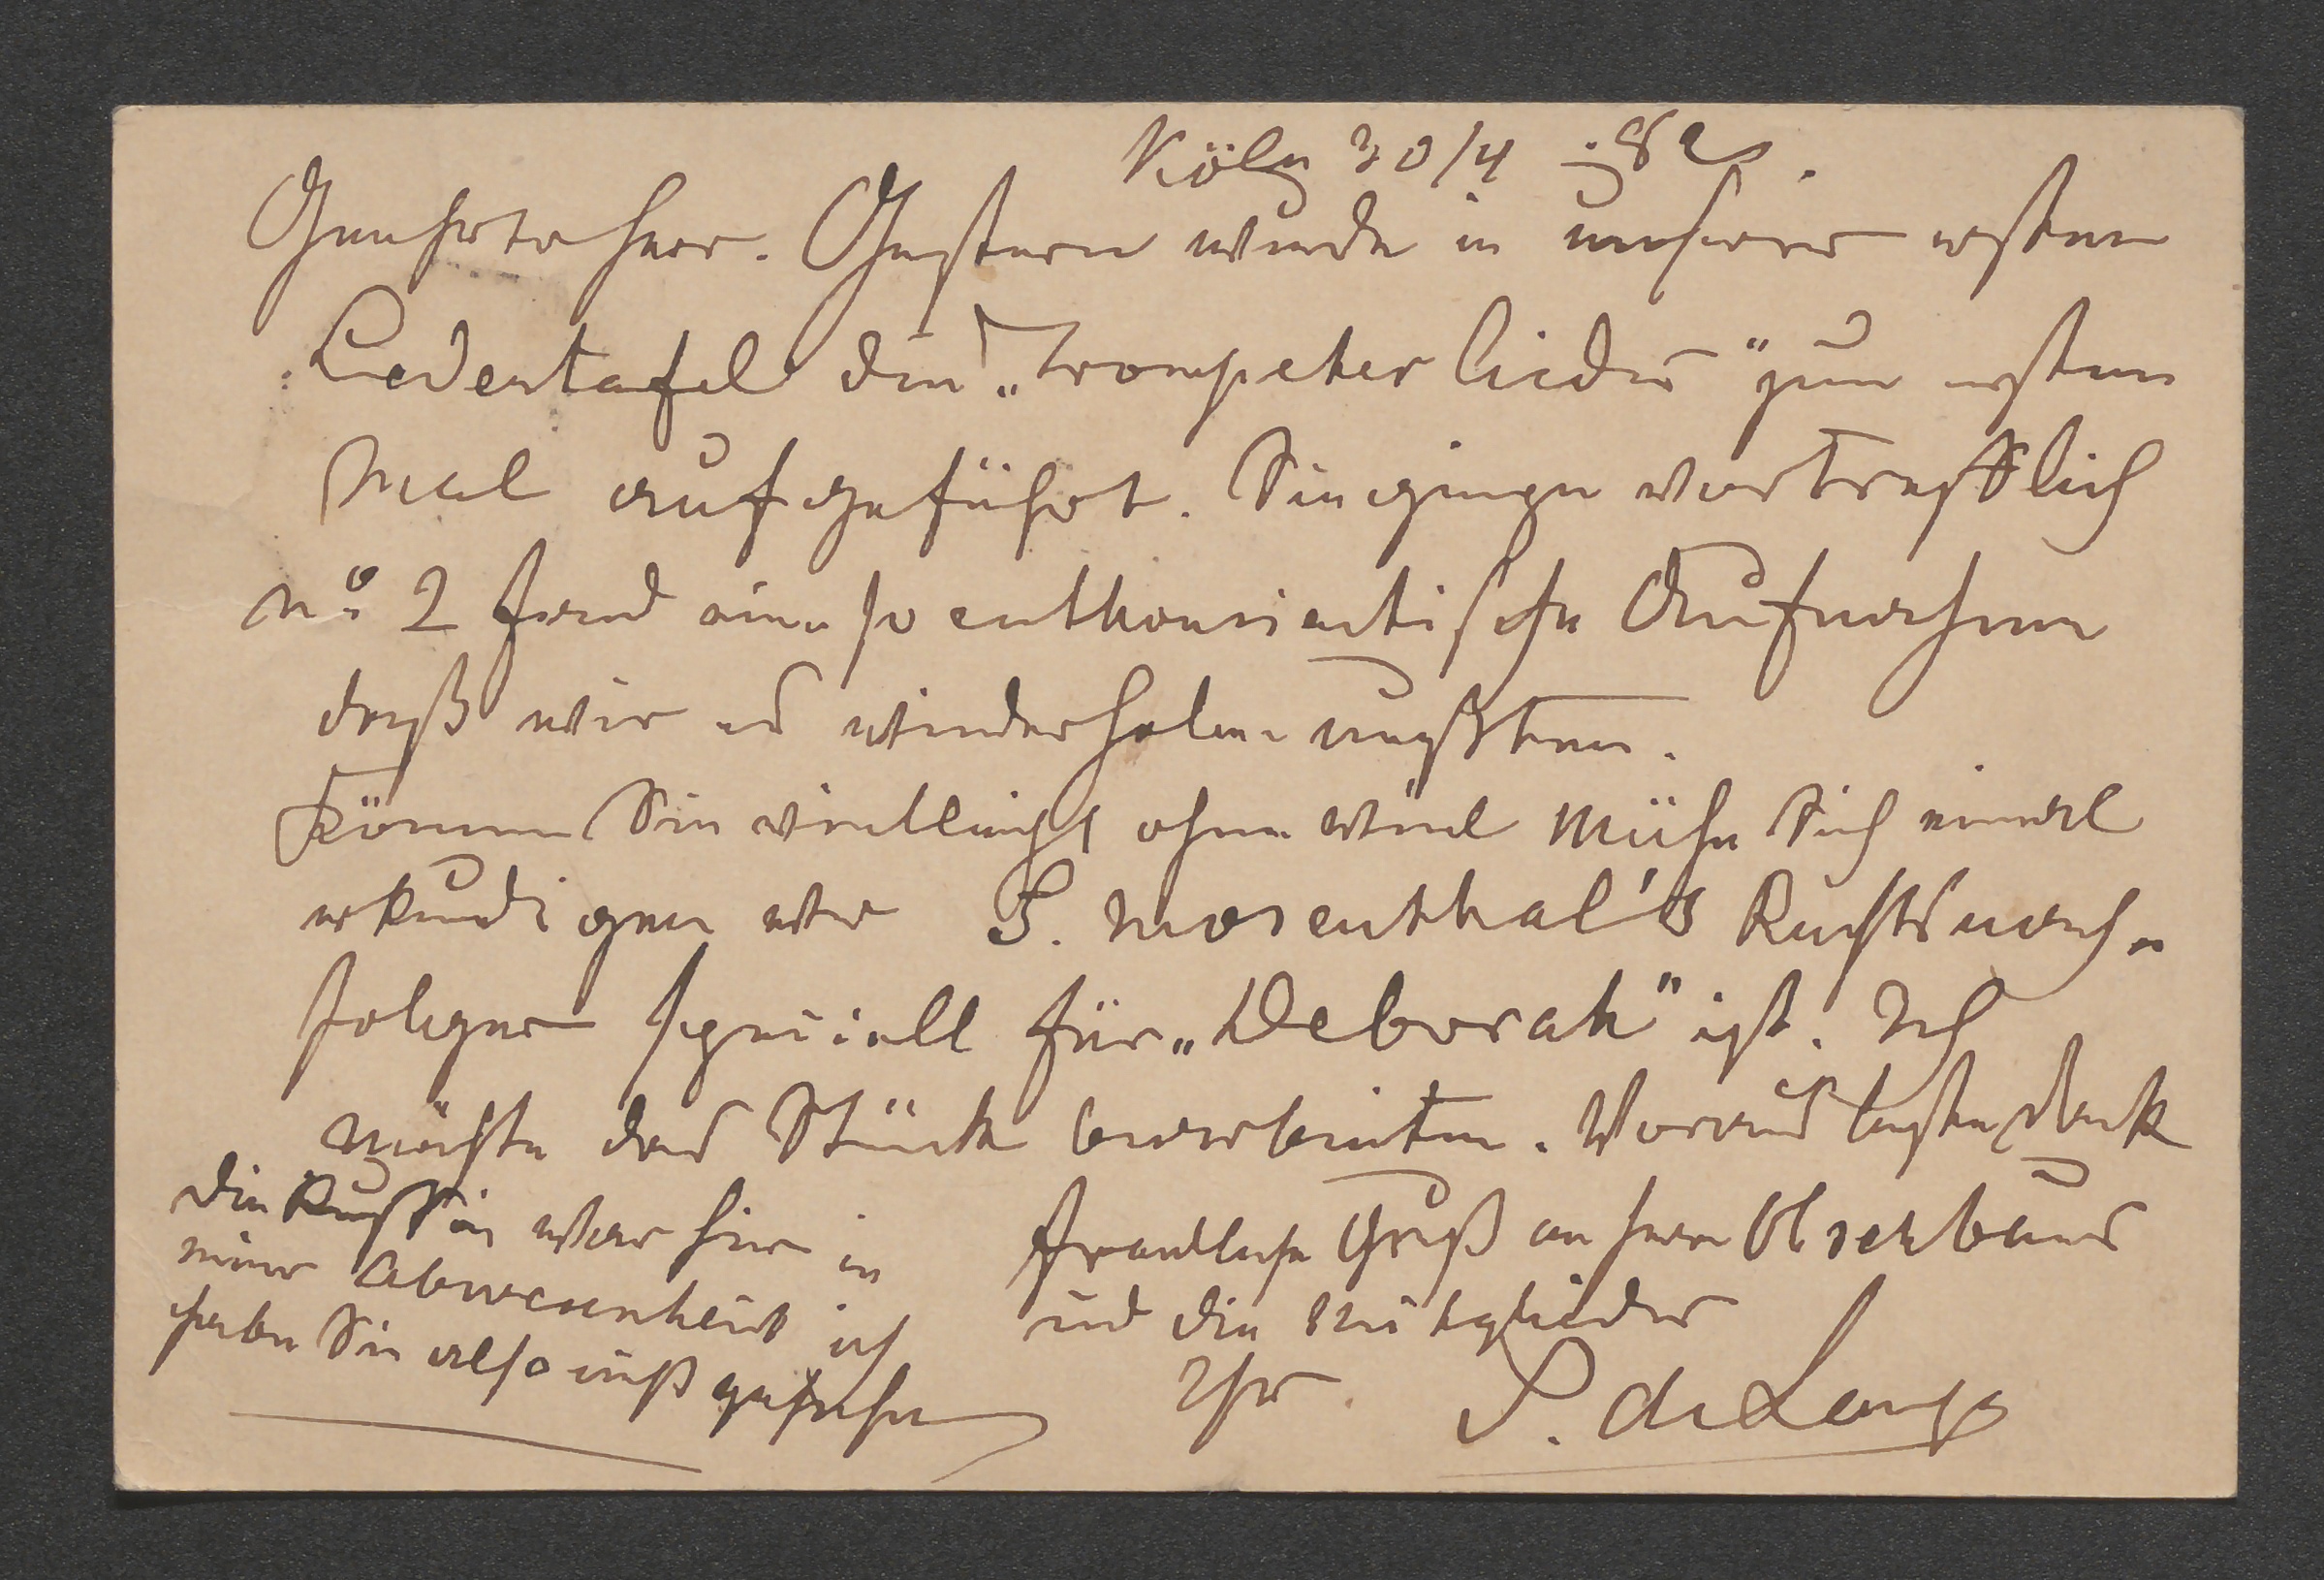 Köln 30/4 82.
Geehrter Herr. Gestern wurde in unserer ersten
Liedertafel die „Trompeterlieder" zum ersten
Mal aufgeführt. Sie gingen vortrefflich
No 2 fand eine so enthousiastische Aufnahme
daß wir es wiederholen mußten.
Können Sie vielleicht ohne viel Mühe sich einmal
erkundigen wer S. Mosenthal's Rechtsnach-
folger speciell für „Deborah" ist. Ich
möchte das Stück bearbeiten. Voraus besten Dank
freundliche Gruß an Herrn
und die Mitglieder
Ihr S. de Lange
Die Russin war hier in
meiner Abwesenheit ich
habe Sie also nicht gesehen